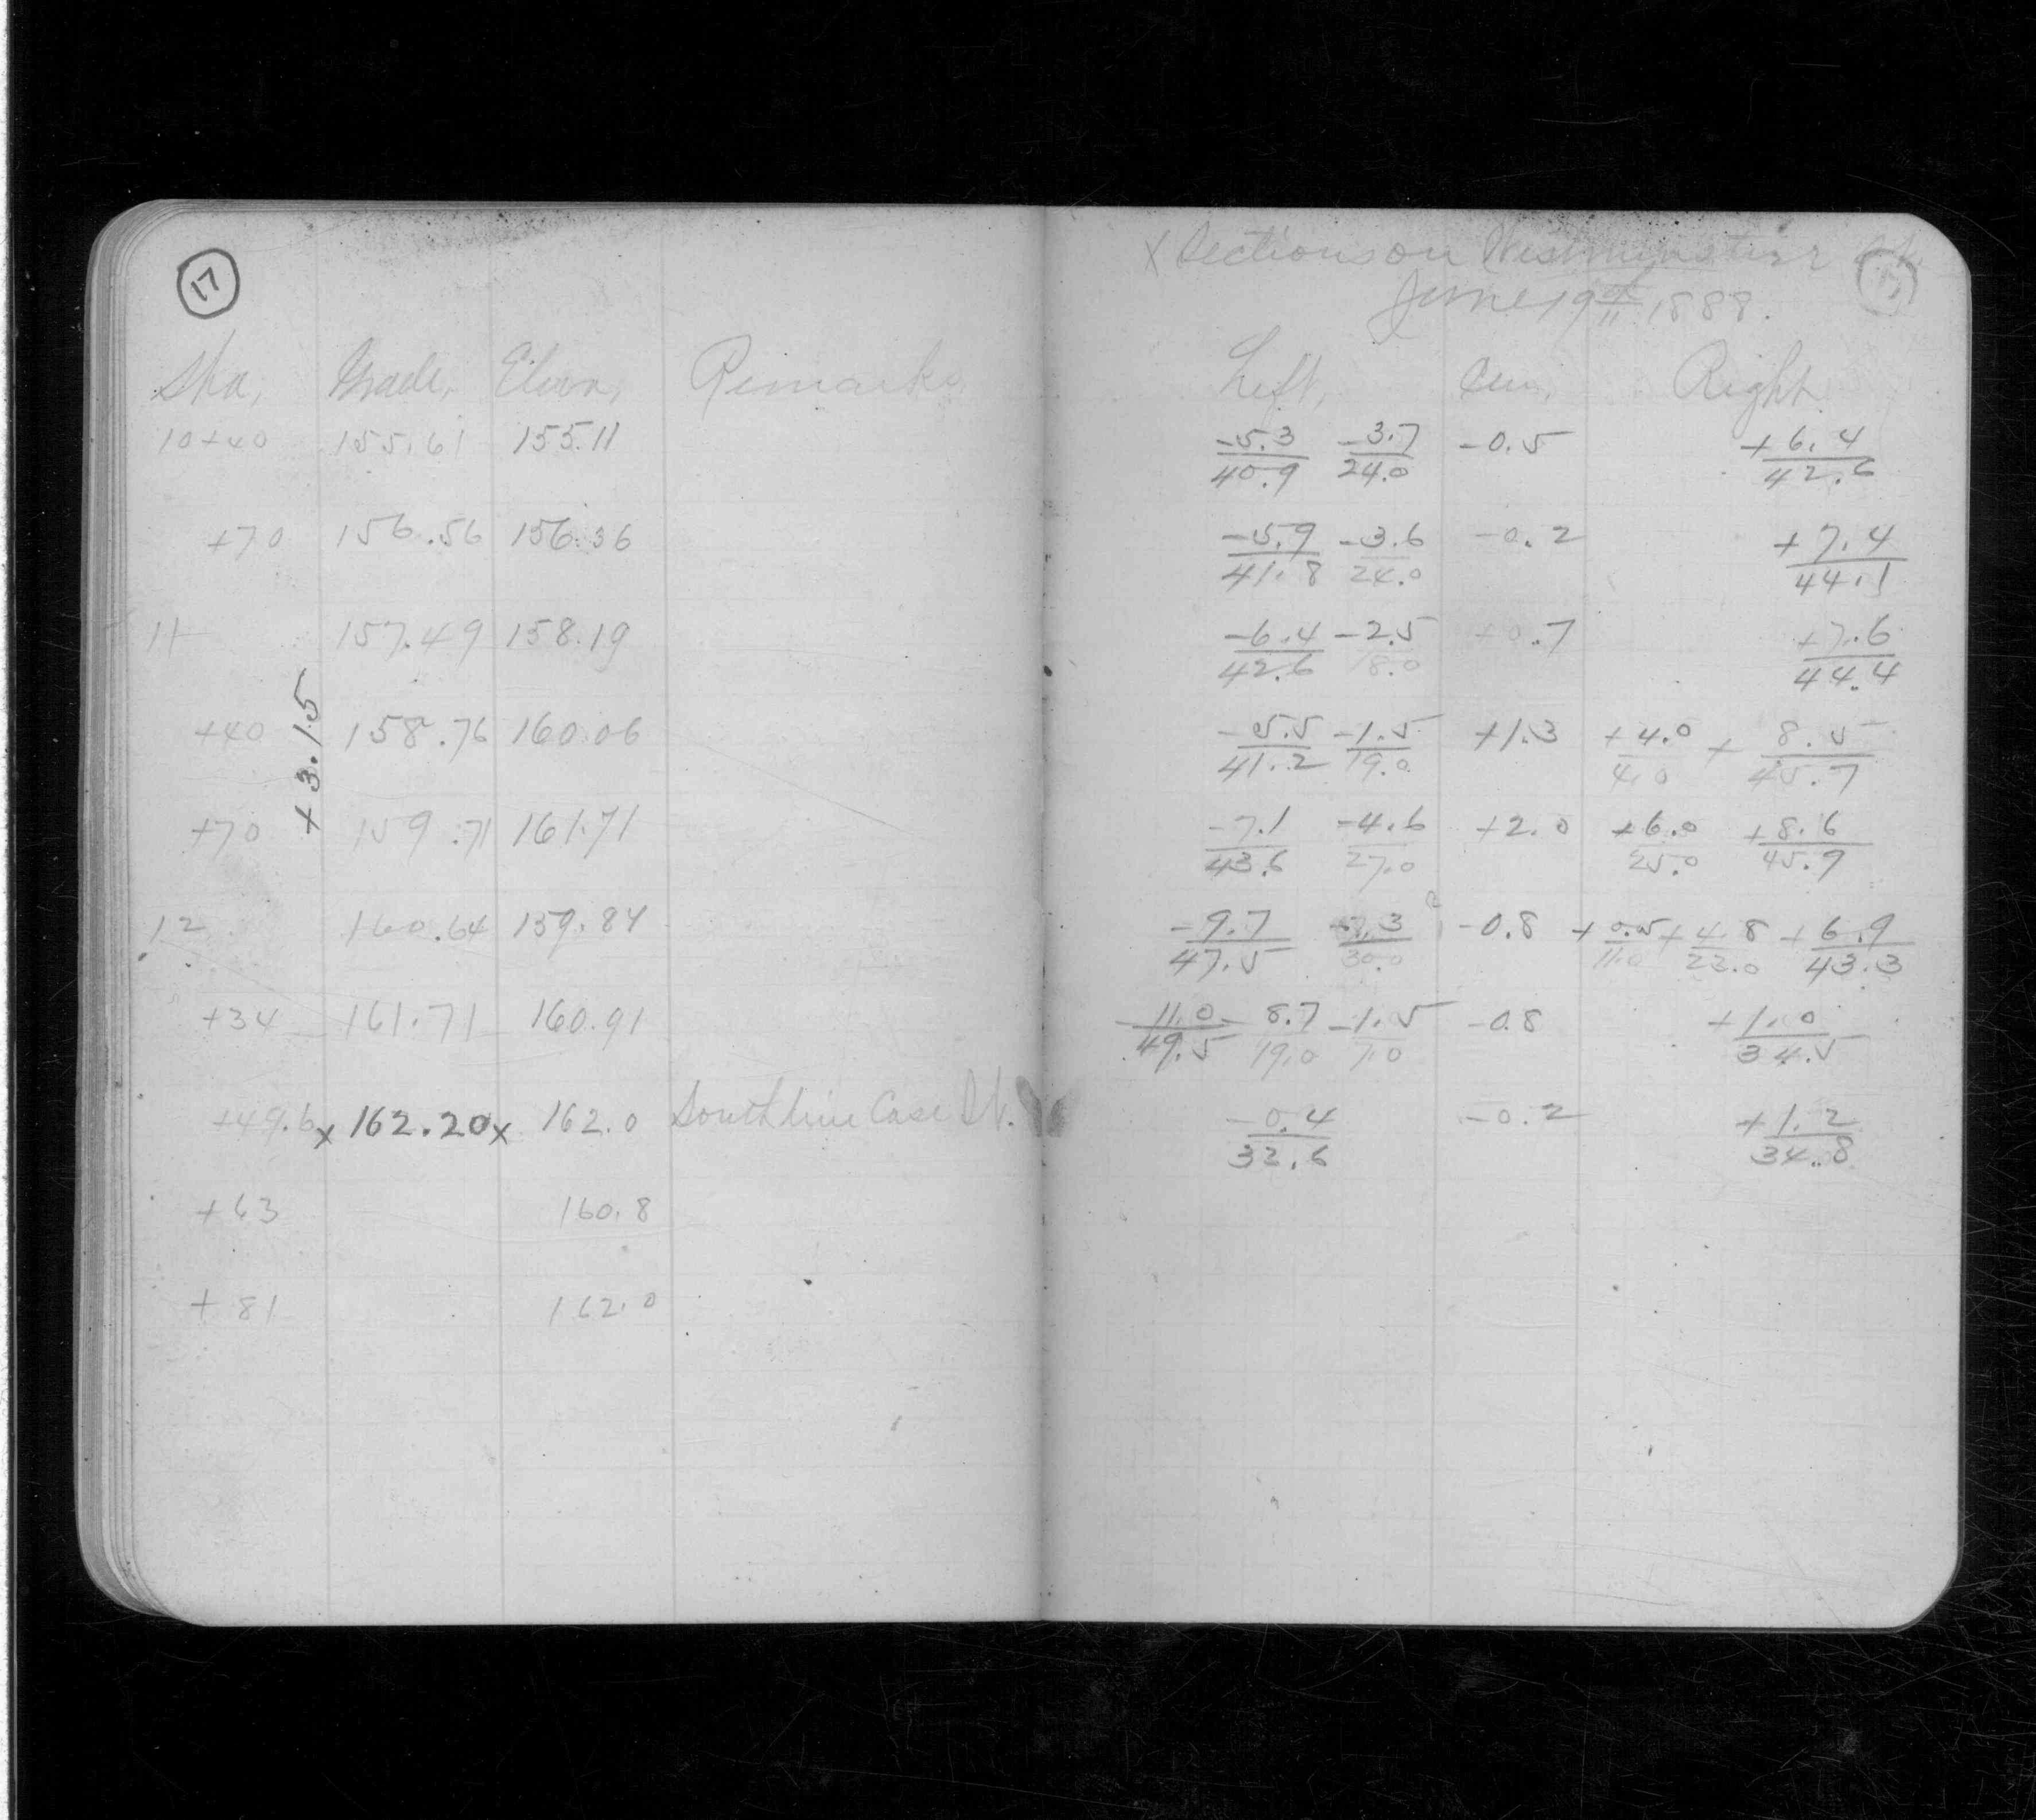 17
Sta, Grade, Elevn, Remarks
10+40 155.61 155.11
+70 156.56 156.36
11 157.49 158.19
+3.15
+40 158.76 160.06
+70 159.71 161.71
12 160.64 159.84
+34 161.71 160.91
+49.6 x 162.20 x 162.0 South line Case St.
+63 160.8
+81 162.0
X Sections on Westminster St.
17
June 19th 1888.
Left, Cen, Right
-5.3 -3.7 -0.5 +6.4
40.9 24.0 42.6
-5.9 -3.6 -0.2 +7.4
41.8 24.0 44.1
-6.4 -2.5 +0.7 +7.6
42.6 18.0 44.4
-5.5 -1.5 +1.3 +4.0 + 8.5
41.2 19.0 4.0 45.7
-7.1 -4.6 +2.0 +6.0 +8.6
43.6 27.0 25.0 45.9
-9.7 -7.3 -0.8 +0.5 +4.8 +6.9
47.5 30.0 11.0 23.0 43.3
-11.0 -8.7 -1.5 -0.8 +1.0
49.5 19.0 1.0 34.5
-0.4 -0.2 +1.2
33.6 34.8